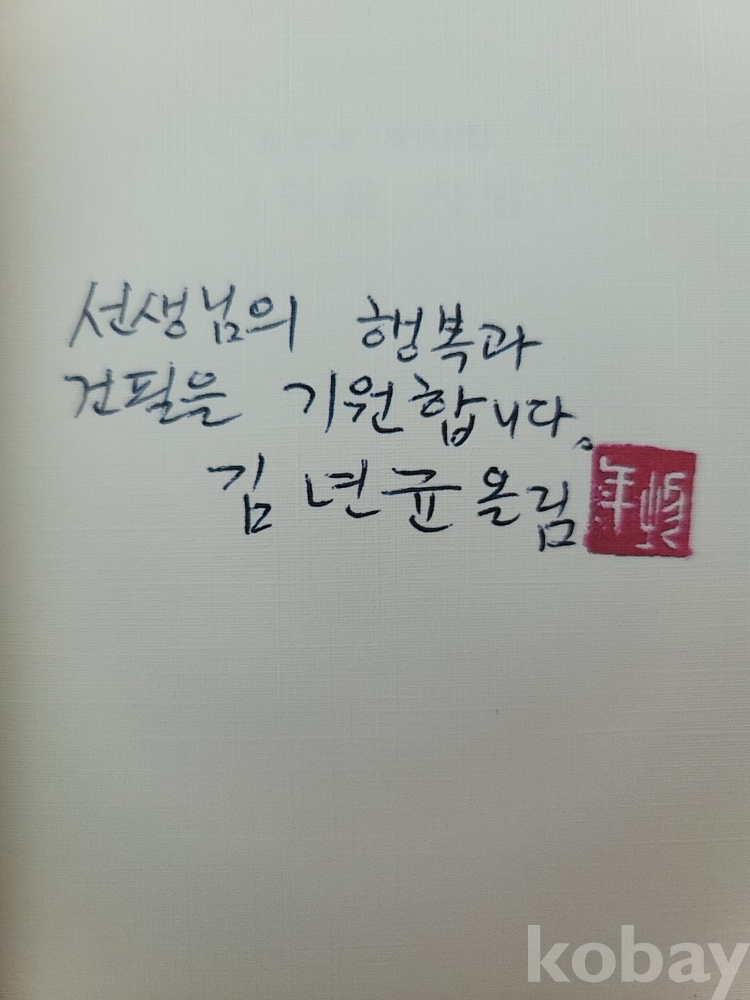 선생님의 행복과
건필을 기원합니다.
김년균 올림
年
kobay